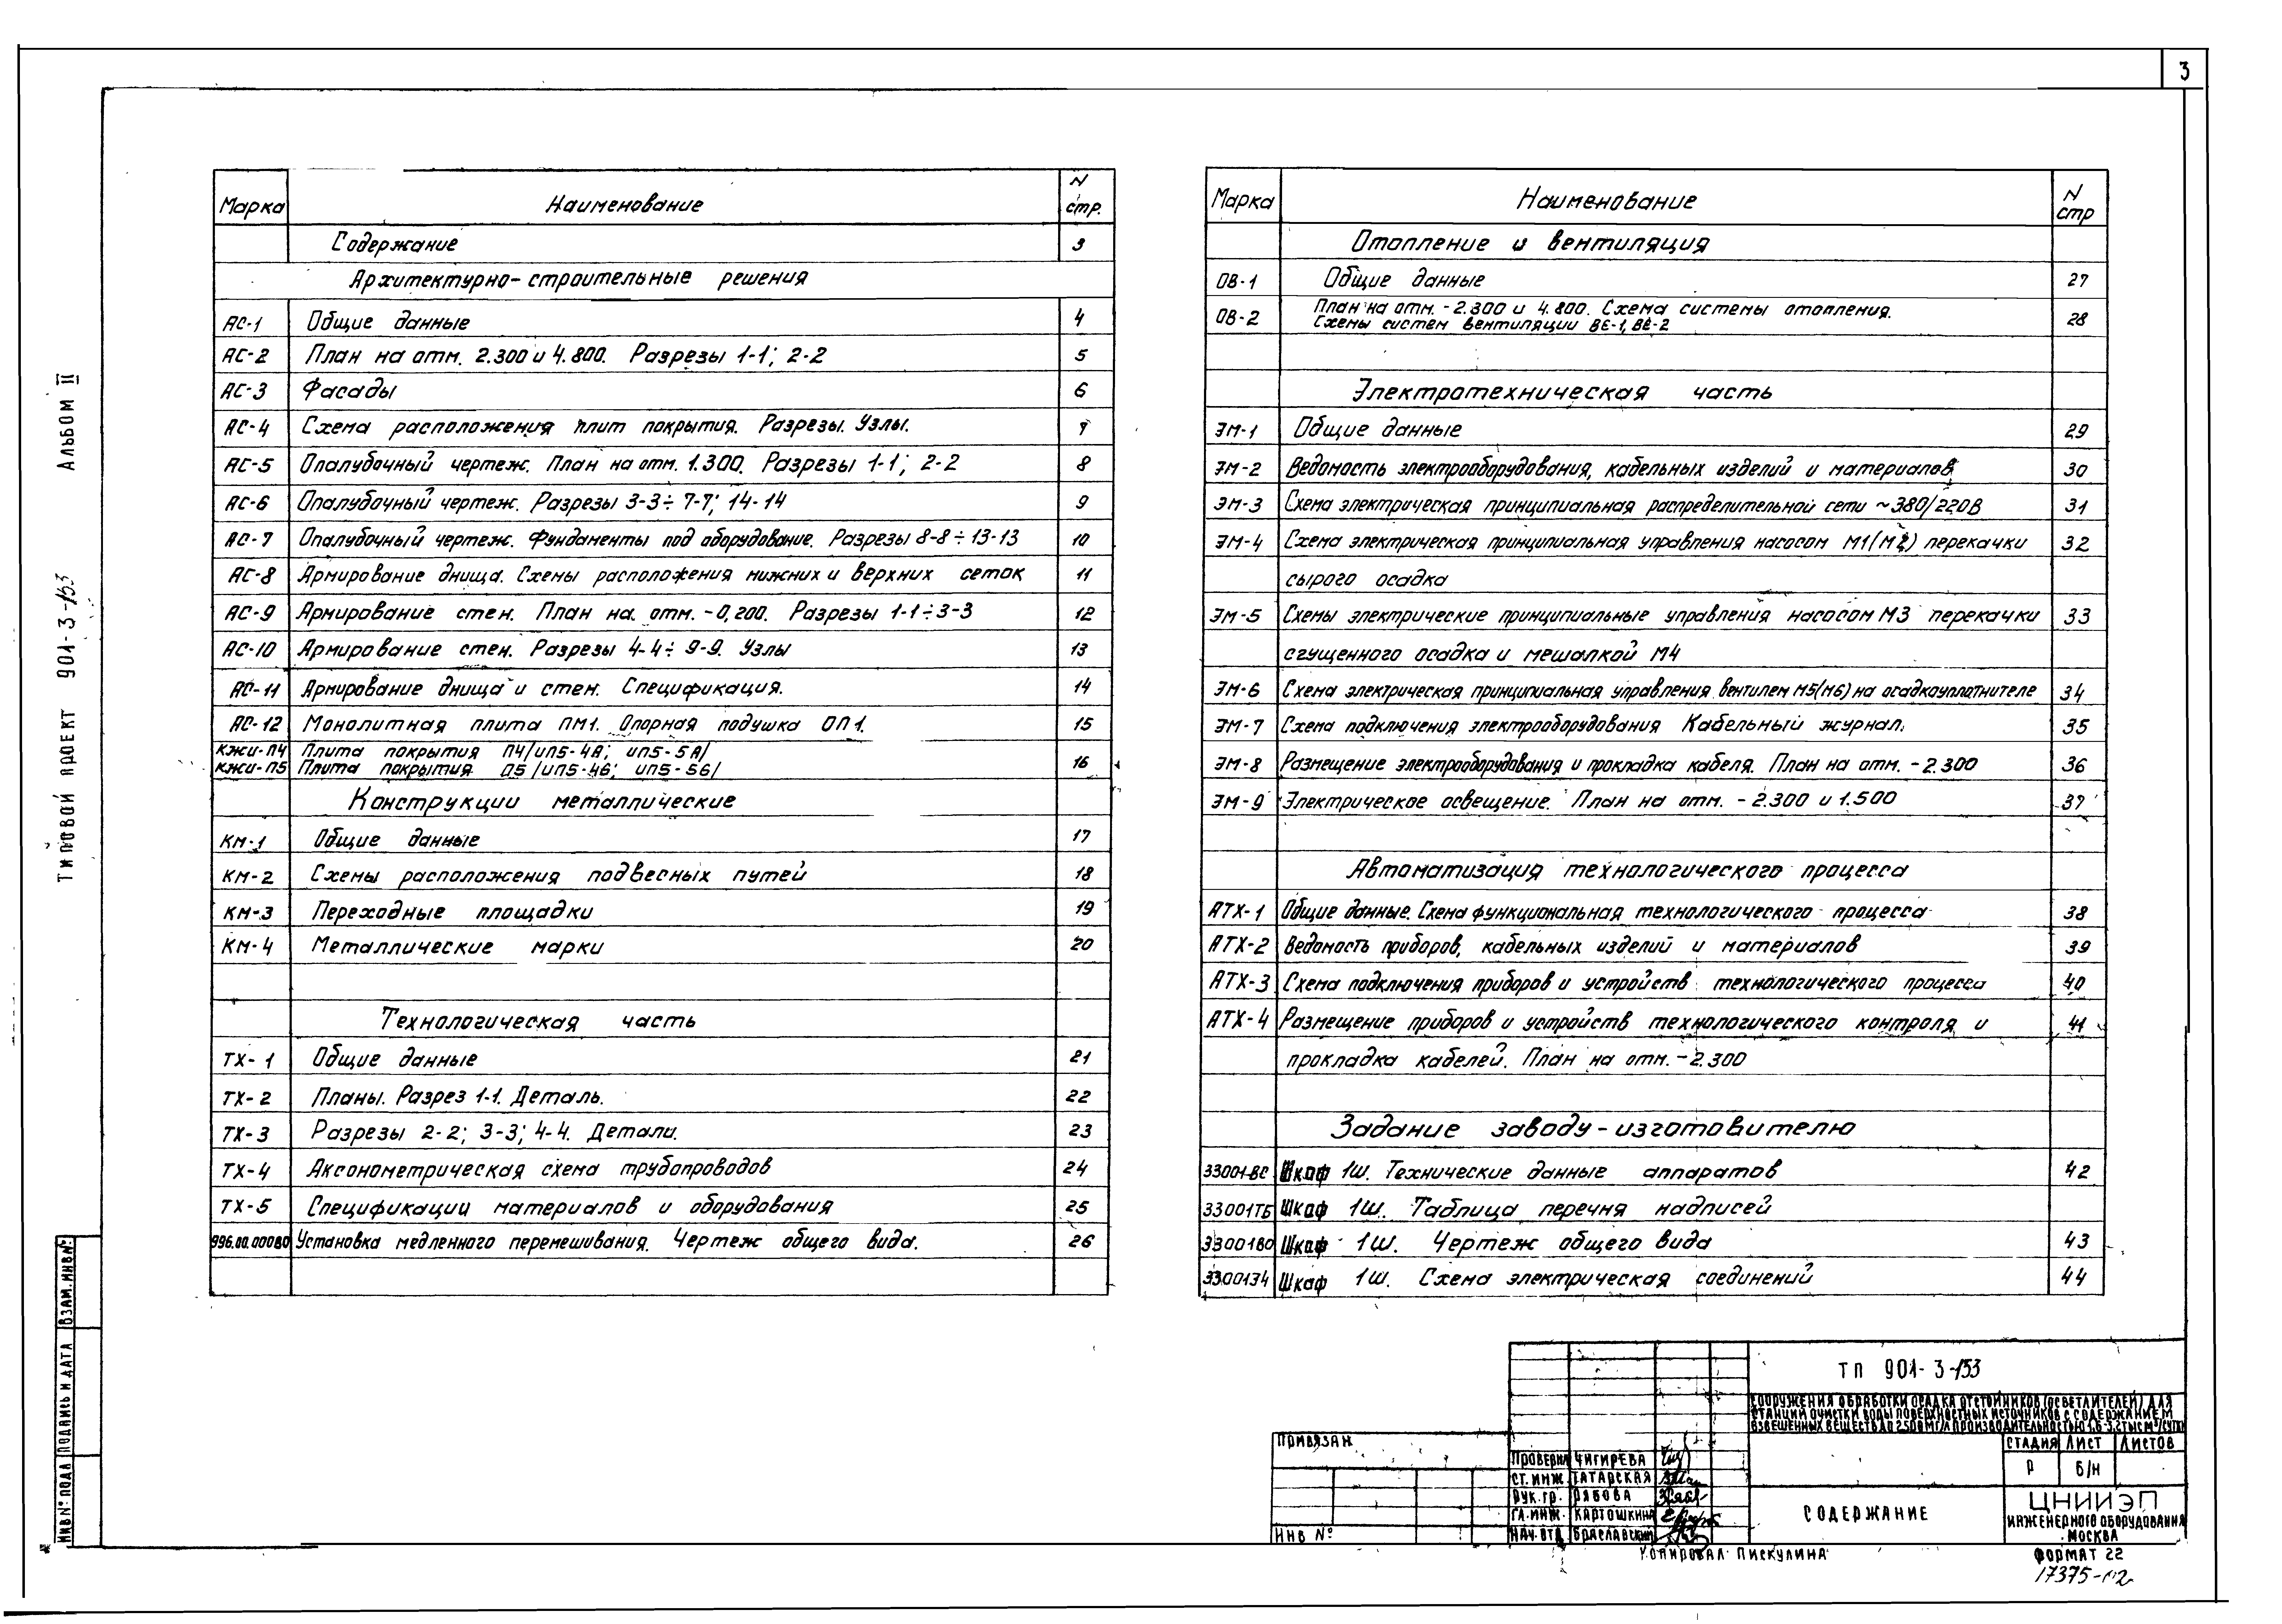 3
Альбом II
Типовой проект 901-3-153
Марка Наименование N стр.
Содержание 3
Архитектурно-строительные решения
АС-1 Общие данные 4
АС-2 План на отм. 2.300 и 4.800. Разрезы 1-1; 2-2 5
АС-3 Фасады 6
АС-4 Схема расположения плит покрытия. Разрезы. Узлы. 7
АС-5 Опалубочный чертеж. План на отм. 1.300. Разрезы 1-1; 2-2 8
АС-6 Опалубочный чертеж. Разрезы 3-3÷7-7; 14-14 9
АС-7 Опалубочный чертеж. Фундаменты под оборудование. Разрезы 8-8÷13-13 10
АС-8 Армирование днища. Схемы расположения нижних и верхних сеток 11
АС-9 Армирование стен. План на отм. -0,200. Разрезы 1-1÷3-3 12
АС-10 Армирование стен. Разрезы 4-4÷9-9. Узлы 13
АС-11 Армирование днища и стен. Спецификация. 14
АС-12 Монолитная плита ПМ1. Опорная подушка ОП1. 15
КЖИ-П4 Плита покрытия П4/ИП5-4А; ИП5-5А/
КЖИ-П5 Плита покрытия П5/ИП5-4Б; ИП5-5Б/ 16
Конструкции металлические
КМ-1 Общие данные 17
КМ-2 Схемы расположения подвесных путей 18
КМ-3 Переходные площадки 19
КМ-4 Металлические марки 20
Технологическая часть
ТХ-1 Общие данные 21
ТХ-2 Планы. Разрез 1-1. Деталь. 22
ТХ-3 Разрезы 2-2; 3-3; 4-4. Детали. 23
ТХ-4 Аксонометрическая схема трубопроводов 24
ТХ-5 Спецификации материалов и оборудования 25
996.00.000ВО Установка медленного перемешивания. Чертеж общего вида. 26
Марка Наименование N стр
Отопление и вентиляция
ОВ-1 Общие данные 27
ОВ-2 План на отм. -2.300 и 4.800. Схема системы отопления.
Схемы систем вентиляции ВЕ-1, ВЕ-2 28
Электротехническая часть
ЭМ-1 Общие данные 29
ЭМ-2 Ведомость электрооборудования, кабельных изделий и материалов 30
ЭМ-3 Схема электрическая принципиальная распределительной сети ~380/220В 31
ЭМ-4 Схема электрическая принципиальная управления насосом М1(М2) перекачки 32
сырого осадка
ЭМ-5 Схемы электрические принципиальные управления насосом М3 перекачки 33
сгущенного осадка и мешалкой М4
ЭМ-6 Схема электрическая принципиальная управления вентилем М5(М6) на осадкоуплатнителе 34
ЭМ-7 Схема подключения электрооборудования Кабельный журнал. 35
ЭМ-8 Размещение электрооборудования и прокладка кабеля. План на отм. -2.300 36
ЭМ-9 Электрическое освещение. План на отм. -2.300 и 1.500 37
Автоматизация технологического процесса
АТХ-1 Общие данные. Схема функциональная технологического процесса 38
АТХ-2 Ведомость приборов, кабельных изделий и материалов 39
АТХ-3 Схема подключения приборов и устройств технологического процесса 40
АТХ-4 Размещение приборов и устройств технологического контроля и 41
прокладка кабелей. План на отм. -2.300
Задание заводу-изготовителю
33001-ВС Шкаф 1ш. Технические данные аппаратов 42
33001ТБ Шкаф 1ш. Таблица перечня надписей
33001ВО Шкаф 1ш. Чертеж общего вида 43
33001Э4 Шкаф 1ш. Схема электрическая соединений 44
Взам. инв №
Подпись и дата
Инв № подл
Привязан
Инв №
Проверил Чигирева
Ст. инж. Татарская
Рук. гр. Рябова
Гл. инж. Картошкина
Нач. отд Браславский
ТП 901-3-153
Сооружения обработки осадка отстойников (осветлителей) для
станций очистки воды поверхностных источников с содержанием
взвешенных веществ до 2500 мг/л производительностью 1,6-3,2 тыс м³/сутки
Стадия Лист Листов
Р б/н
Содержание
ЦНИИЭП
инженерного оборудования
Москва
Копировал Пискулина
Формат 22
17375-02